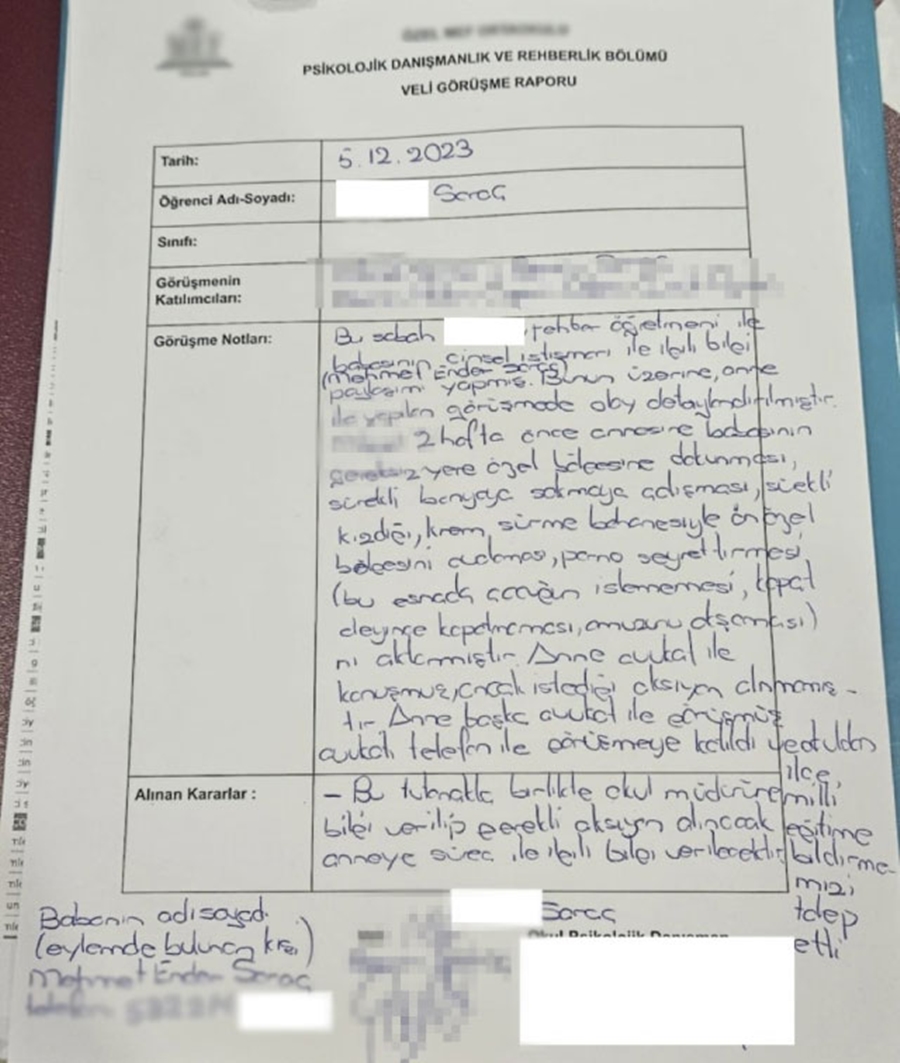 PSİKOLOJİK DANIŞMANLIK VE REHBERLİK BÖLÜMÜ
VELİ GÖRÜŞME RAPORU
Tarih: 5.12.2023
Öğrenci Adı-Soyadı: Saraç
Sınıfı:
Görüşmenin
Katılımcıları:
Görüşme Notları: Bu sabah rehber öğretmeni ile
babasının cinsel istismarı ile ilgili bilgi
(Mehmet Ender Saraç)
paylaşımı yapmış. Bunun üzerine, anne
ile yapılan görüşmede olay detaylandırılmıştır.
2 hafta önce annesine babasının
gereksiz yere özel bölgesine dokunması,
sürekli banyoya sokmaya çalışması, sürekli
kızdığı, krem sürme bahanesiyle ön özel
bölgesini, porno seyrettirmesi
(bu esnada çocuğun istememesi, kapat
deyince kapatmaması, omuzunu)
nı aktarmıştır. Anne avukat ile
konuşmuş, ancak istediği aksiyon alınmamış-
tır. Anne başka avukat ile görüşmüş
avukatı telefon ile görüşmeye katıldı ve
Alınan Kararlar : - Bu tutanakla birlikte okul müdürüne
bilgi verilip gerekli aksiyon alınacak
anneye süreç ile ilgili bilgi verilecektir.
ilçe
milli
eğitime
bildirme-
mizi
talep
etti
Saraç
Babanın adı soyadı
(eylemde bulunan kişi)